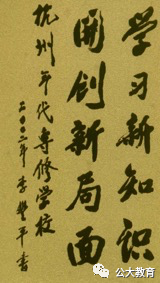 学习新知识
開创新局面
杭州年代專修学校
二〇〇二年 李 平书
公大教育